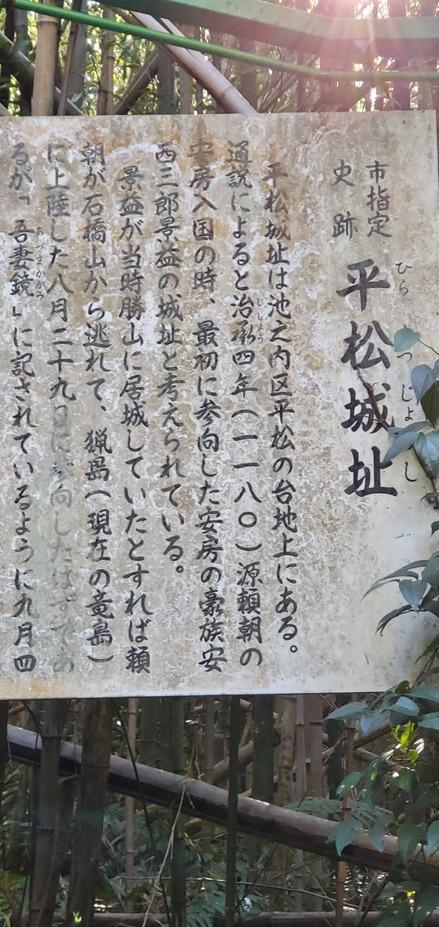 市指定
史跡
平松城址
ひらまつじょうし
平松城址は池之内区平松の台地上にある。
通説によると治承四年（一一八〇）源頼朝の
じしょう
安房入国の時、最初に参向した安房の豪族安
西三郎景益の城址と考えられている。
景益が当時勝山に居城していたとすれば頼
朝が石橋山から逃れて、猟島（現在の竜島）
に上陸した八月二十九日に参向したはずであ
るが「吾妻鏡」に記されているように九月四
あづまかがみ